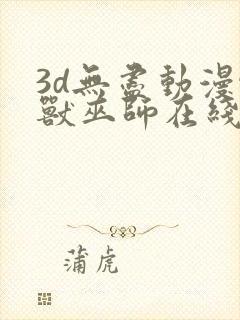 3d無盡動漫
獸巫師在綫
蒲虎